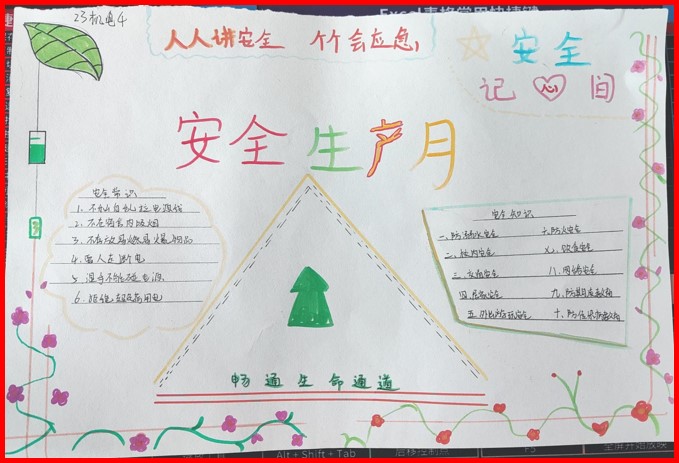 23机电4
人人讲安全 个个会应急
安全
记心间
安全生产月
安全常识
1、不私自乱拉电源线
2、不在宿舍内吸烟
3、不存放易燃易爆物品
4、离人在断电
5、湿手不能碰电源
6、拒绝超负荷用电
安全知识
一、防溺水安全
二、校内安全
三、交通安全
四、居家安全
五、外出游玩安全
六、防火安全
七、饮食安全
八、网络安全
畅通生命通道
Alt + Shift + Tab
后移控制点
F5